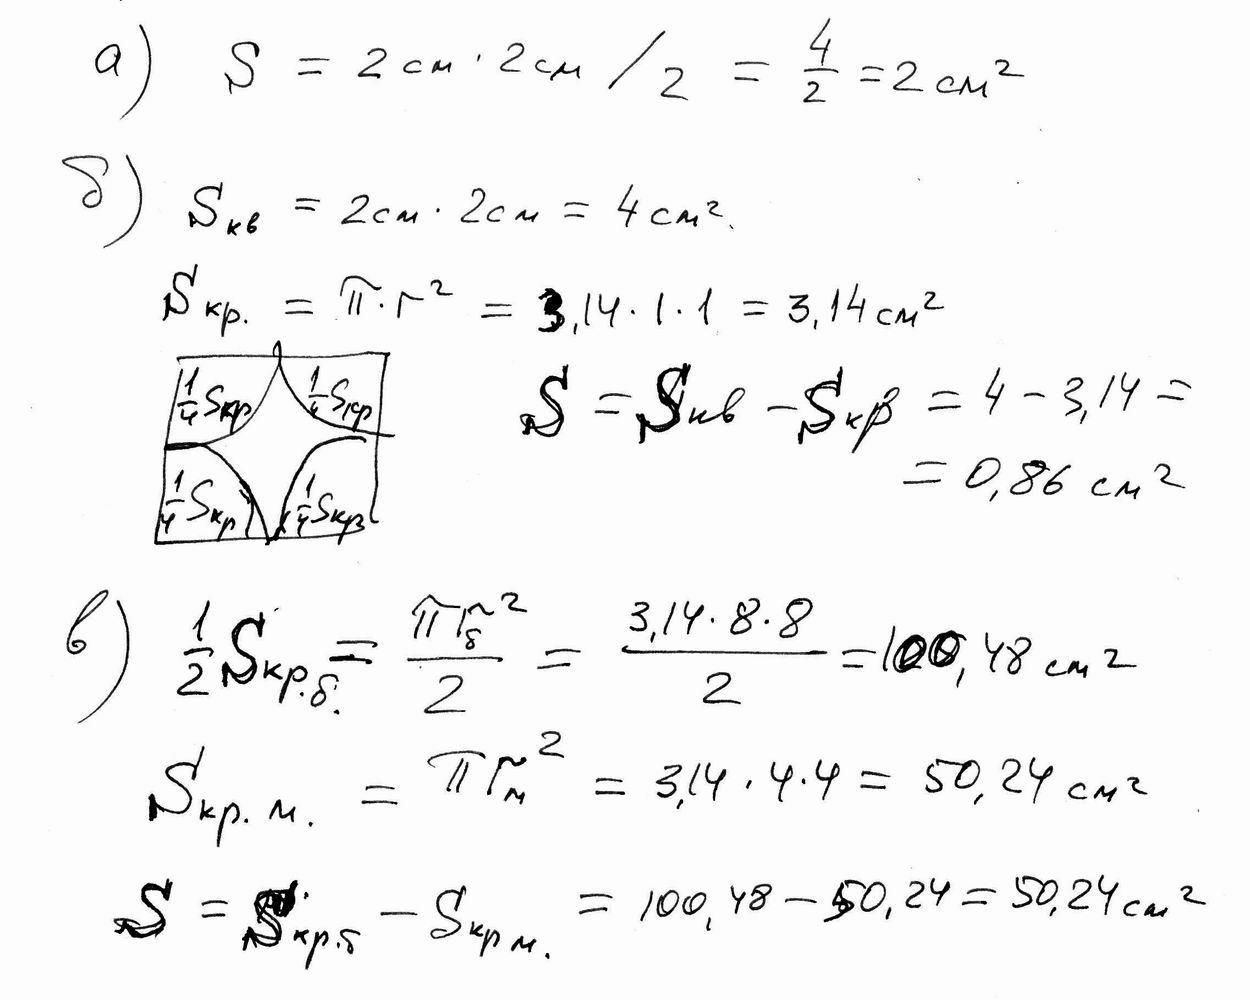 а) S = 2 см · 2 см / 2 = 4/2 = 2 см²
б) Sкв = 2см · 2см = 4 см².
Sкр. = π · r² = 3,14 · 1 · 1 = 3,14 см²
1/4 Sкр 1/4 Sкр
S = Sкв − Sкр = 4 − 3,14 =
= 0,86 см²
1/4 Sкр 1/4 Sкр
в) 1/2 Sкр.б. = πrб²/2 = 3,14 · 8 · 8/2 = 100,48 см²
Sкр. м. = πrм² = 3,14 · 4 · 4 = 50,24 см²
S = Sкр.б − Sкр м. = 100,48 − 50,24 = 50,24 см²